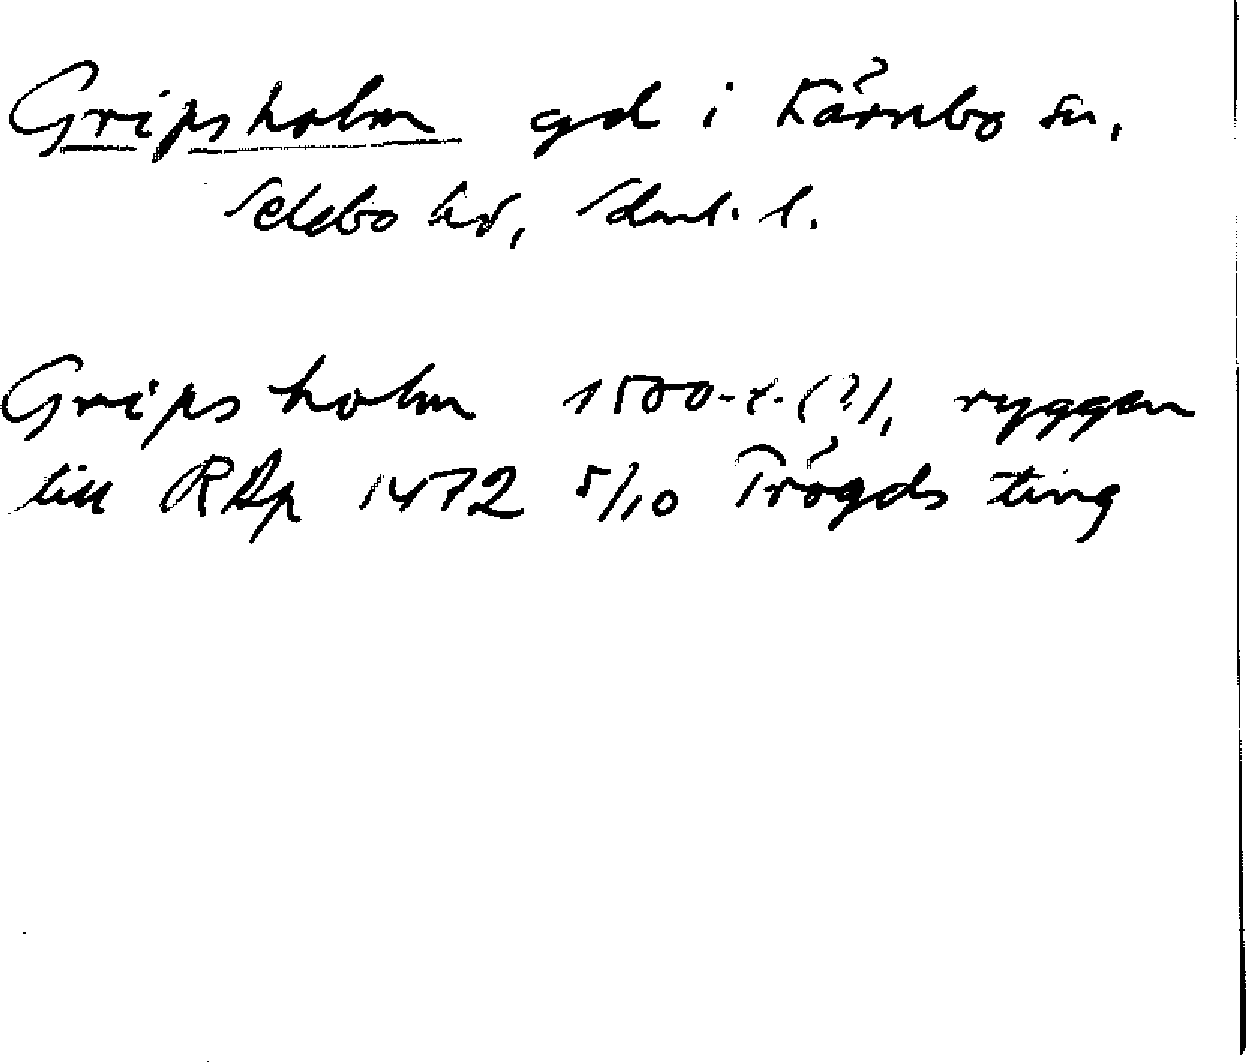 Gripsholm gd i Kärnbo sn,
Selebo hd, Söml. l.
Gripsholm 1500-t. (?), ryggen
till RAp 1472 5/10 Trögds ting